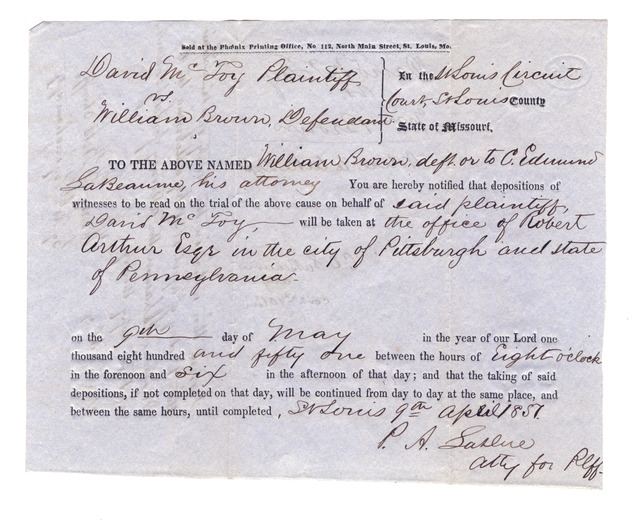 Sold at the Phœnix Printing Office, No 112, North Main Street, St. Louis, Mo.
David Mc Foy Plaintiff
vs.
William Brown, Defendant
In the St Louis Circuit
Court, St Louis County
State of Missouri.
TO THE ABOVE NAMED William Brown, deft. or to C. Edmund
LaBeaume, his attorney You are hereby notified that depositions of
witnesses to be read on the trial of the above cause on behalf of said plaintiff,
David Mc Foy, will be taken at the office of Robert
Arthur Esqr in the city of Pittsburgh and state
of Pennsylvania.
on the 9th day of May in the year of our Lord one
thousand eight hundred and fifty one between the hours of Eight o'clock
in the forenoon and Six in the afternoon of that day; and that the taking of said
depositions, if not completed on that day, will be continued from day to day at the same place, and
between the same hours, until completed, St Louis 9th April 1851.
P. A.
atty for Plff.